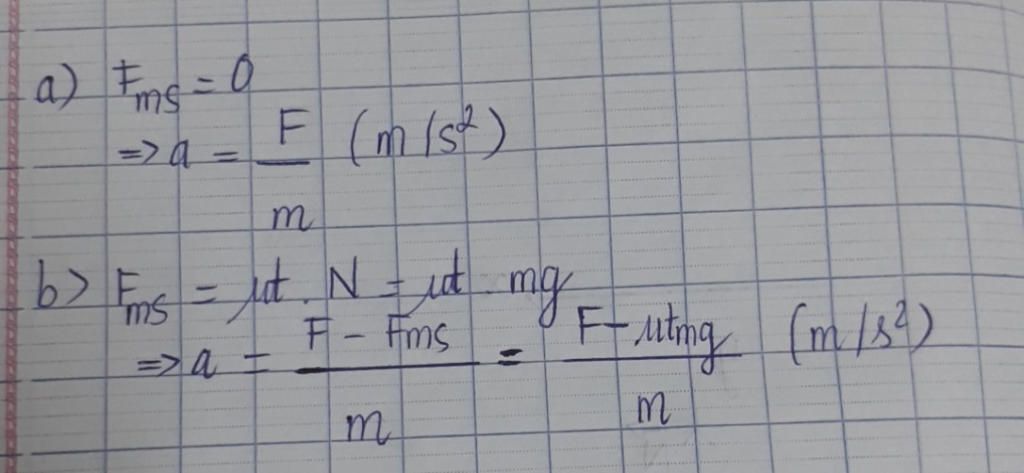 a) Fms = 0
=> a = F/m (m/s²)
b) Fms = μt . N = μt . mg
=> a = (F - Fms)/m = (F - μtmg)/m (m/s²)